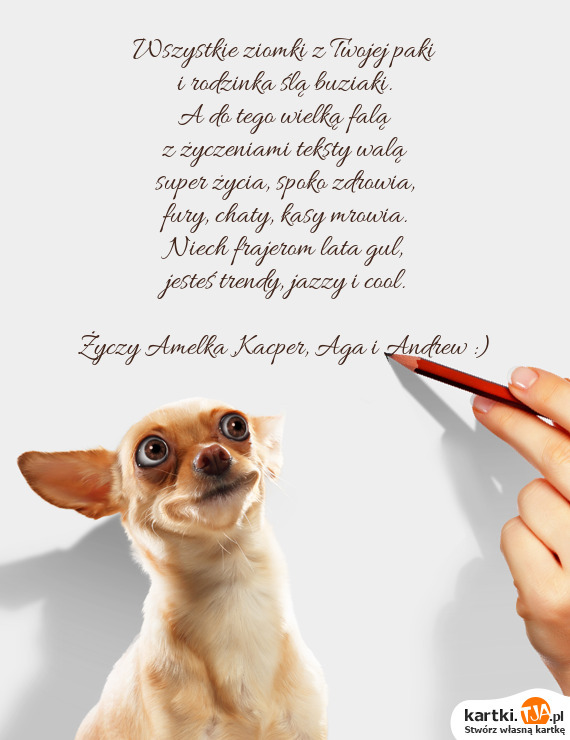 Wszystkie ziomki z Twojej paki
i rodzinka ślą buziaki.
A do tego wielką falą
z życzeniami teksty walą
super życia, spoko zdrowia,
fury, chaty, kasy mrowia.
Niech frajerom lata gul,
jesteś trendy, jazzy i cool.
Życzy Amelka Kacper, Aga i Andrew :)
kartki.TJA.pl
Stwórz własną kartkę